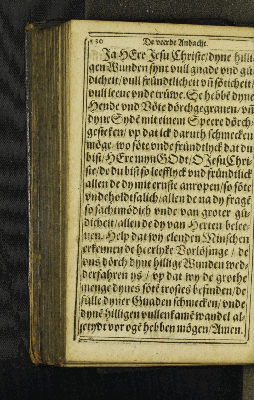 130 De veerde Andacht.
Ja HEre Jesu Christe / dyne hilli-
gen Wunden synt vull gnade vnd gü-
dicheit / vull fründtlicheit vñ sötícheit /
vull leeue vnde trüwe. Se hebbē dyne
Hende vnd Vöte dörchgegrauen / vñ
dyne Sydē mit einem Speere dörch-
gesteken / vp dat ick daruth schmecken
möge / wo söte vnde fründtlyck dat du
bist / HEre myn GOdt / O Jesu Chri-
ste / de du bist so leefflyck vnd fründtlick
allen de dy mit ernste anropen / so söte
vnde holdtsalich / allen de na dy fragē
so sachtmödich vnde van groter gü-
dicheit / allen de dy van Herten belee-
uen. Help dat wy elenden Minschen
erkennen de heerlyke Vorlösinge / de
vns dörch dyne hillige Wunden wed-
derfahren ys / vp dat wy de grothe
menge dynes sötē trostes befinden / de
fülle dyner Gnaden schmecken / vnde
dynē hilligen vullenkamē wandel al-
letydt vor ogē hebben mögen / Amen.